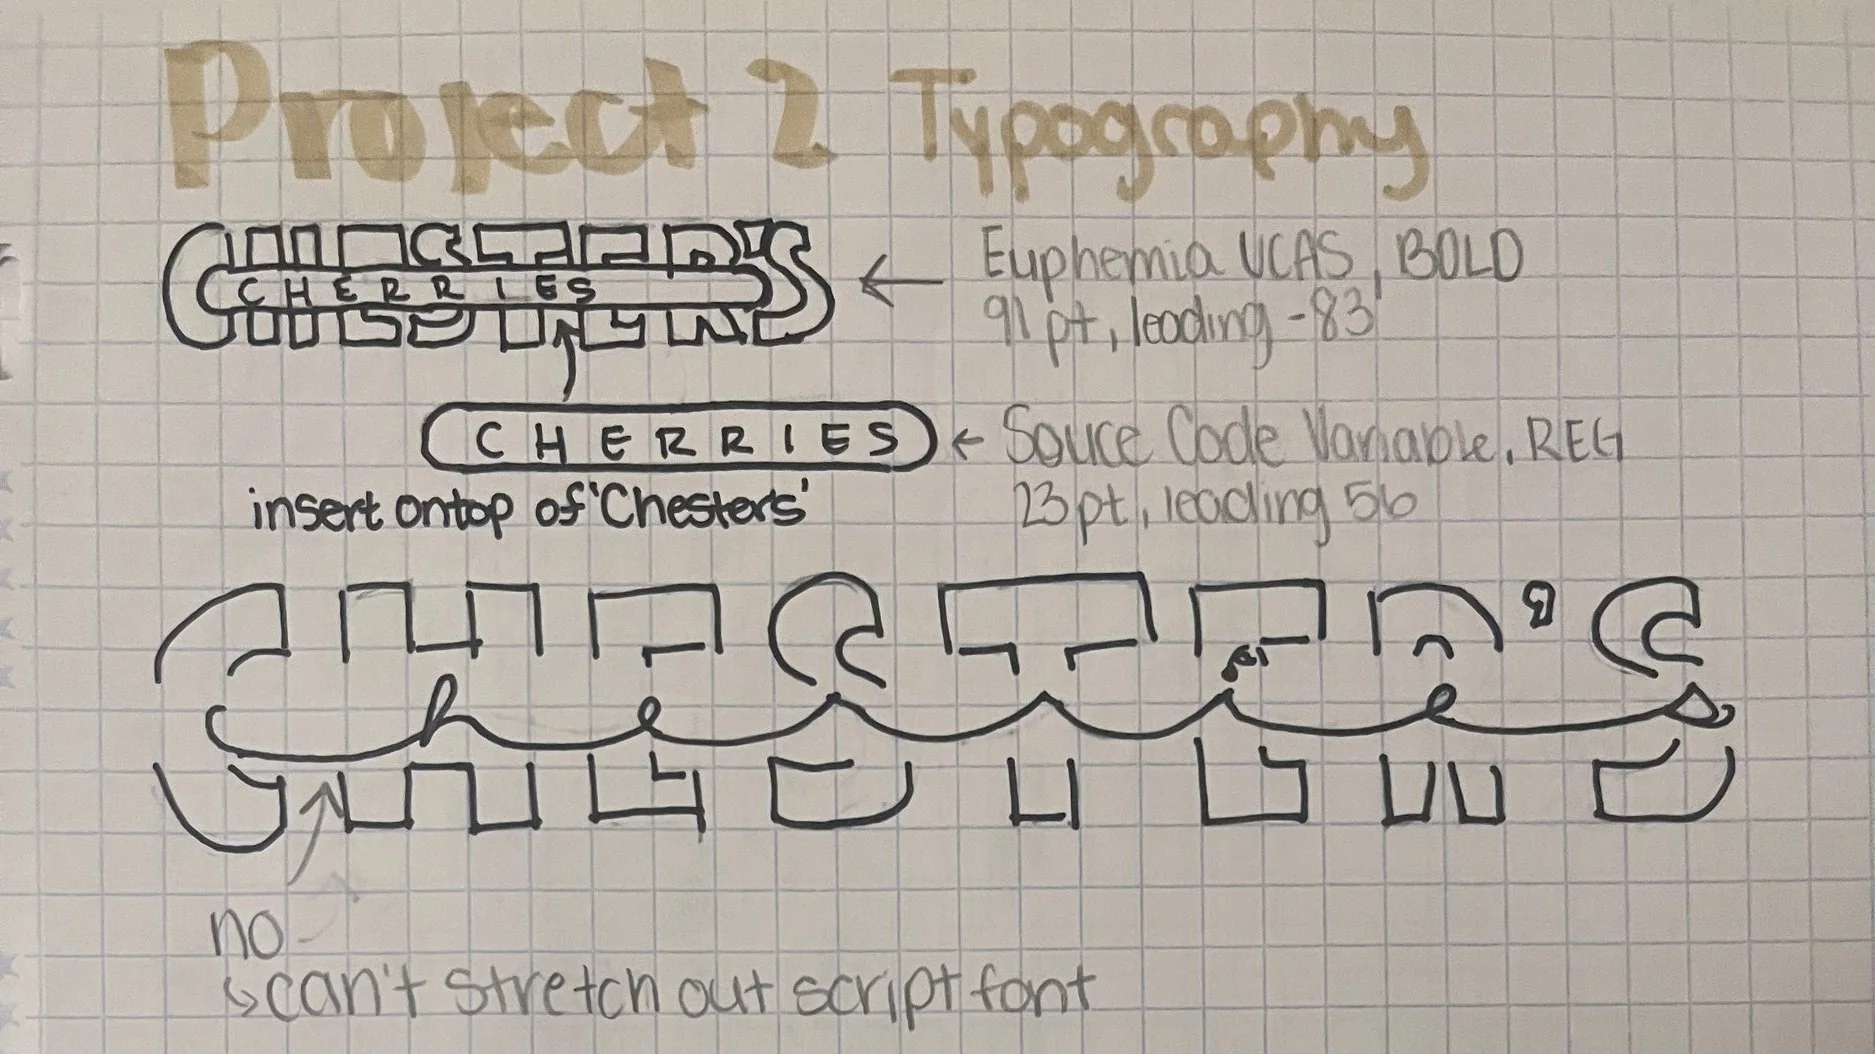 Project 2 Typography
CHESTER'S
CHERRIES
Euphemia UCAS, BOLD
91 pt, leading -83
CHERRIES
Souce Code Variable, REG
23pt, leading 56
insert ontop of 'Chesters'
CHESTER'S
no
can't stretch out script font